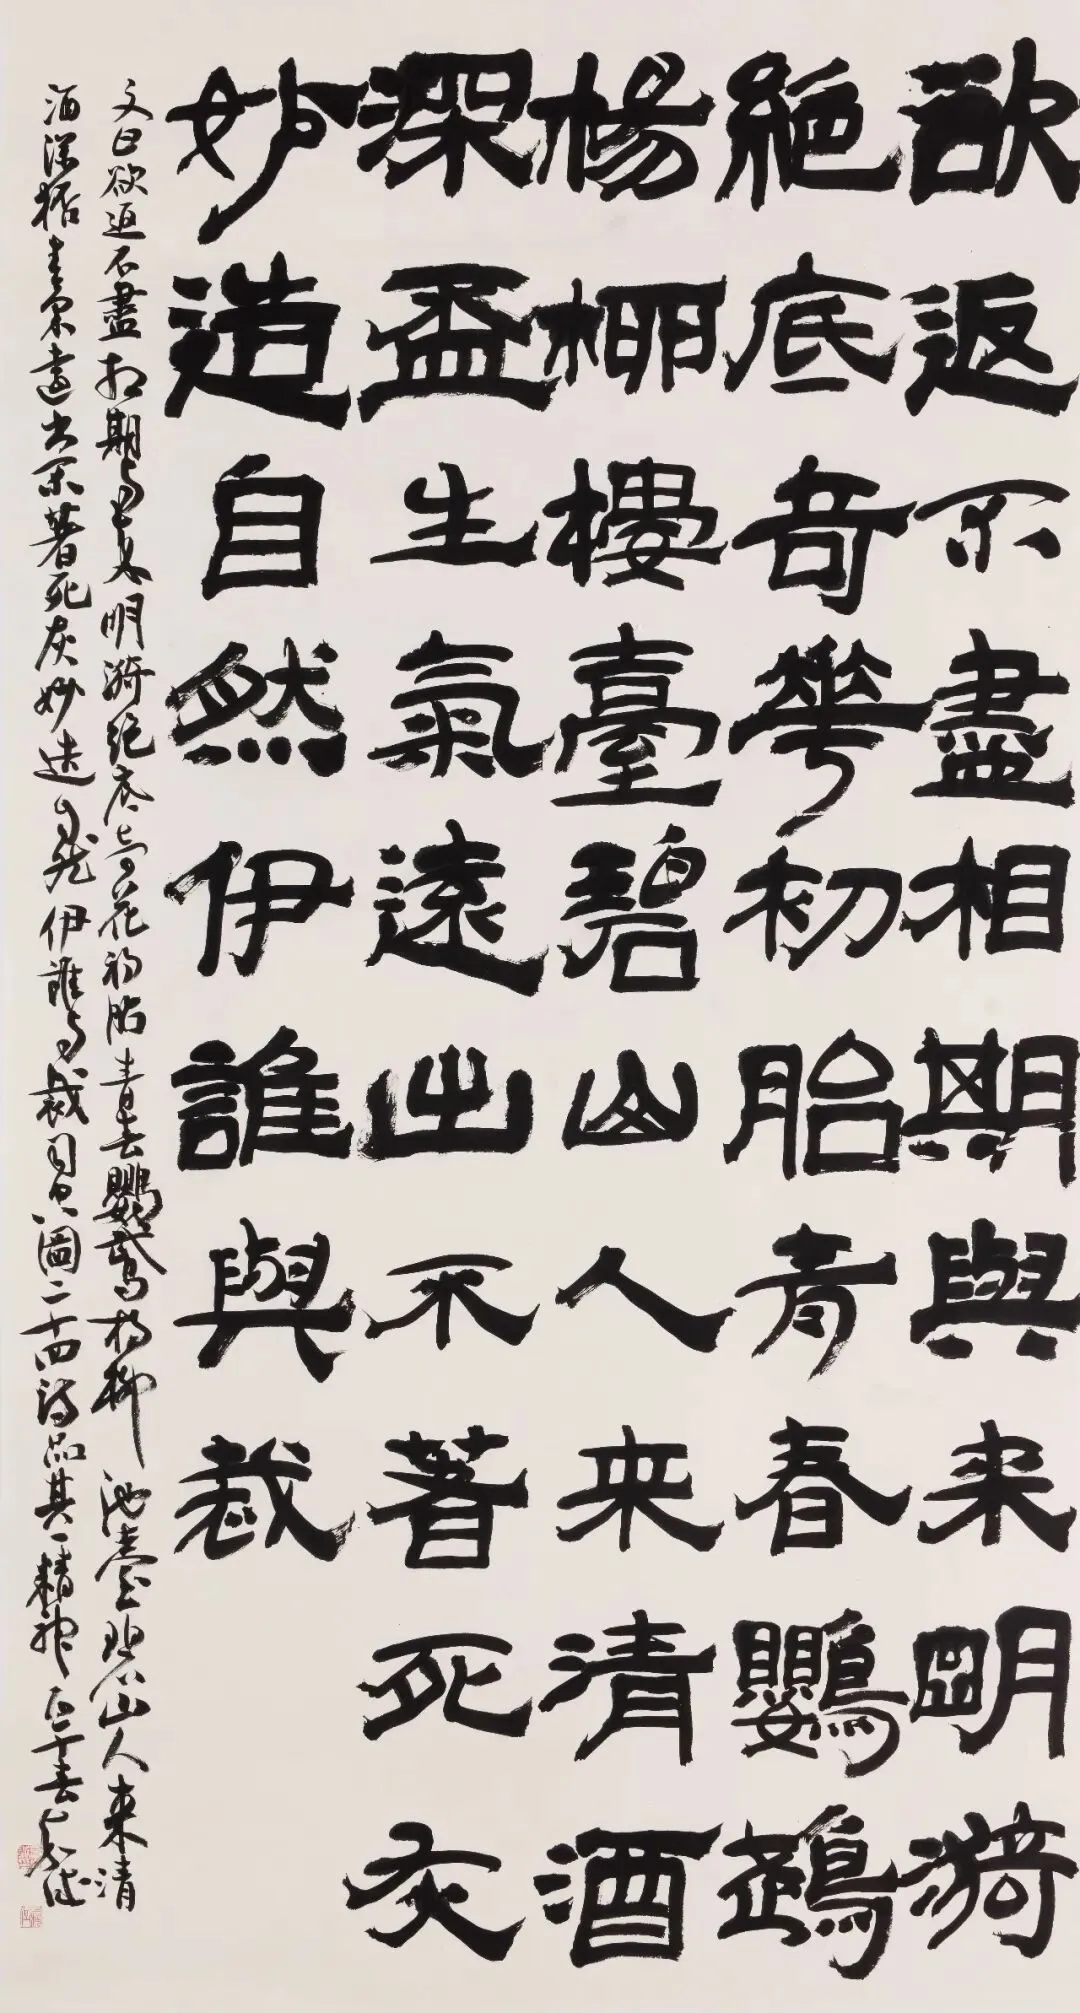 欲返不盡相期與来明漪
絕底奇華初胎青春鸚鵡
楊柳樓臺碧山人来清酒
深盃生氣遠出不著死灰
妙造自然伊誰與裁
文曰欲返不盡相期與来明漪绝底奇花初胎青春鸚鵡楊柳池臺碧山人来清
酒深杯生氣遠出不著死灰妙造自然伊誰與裁司空圖二十四詩品其一精神